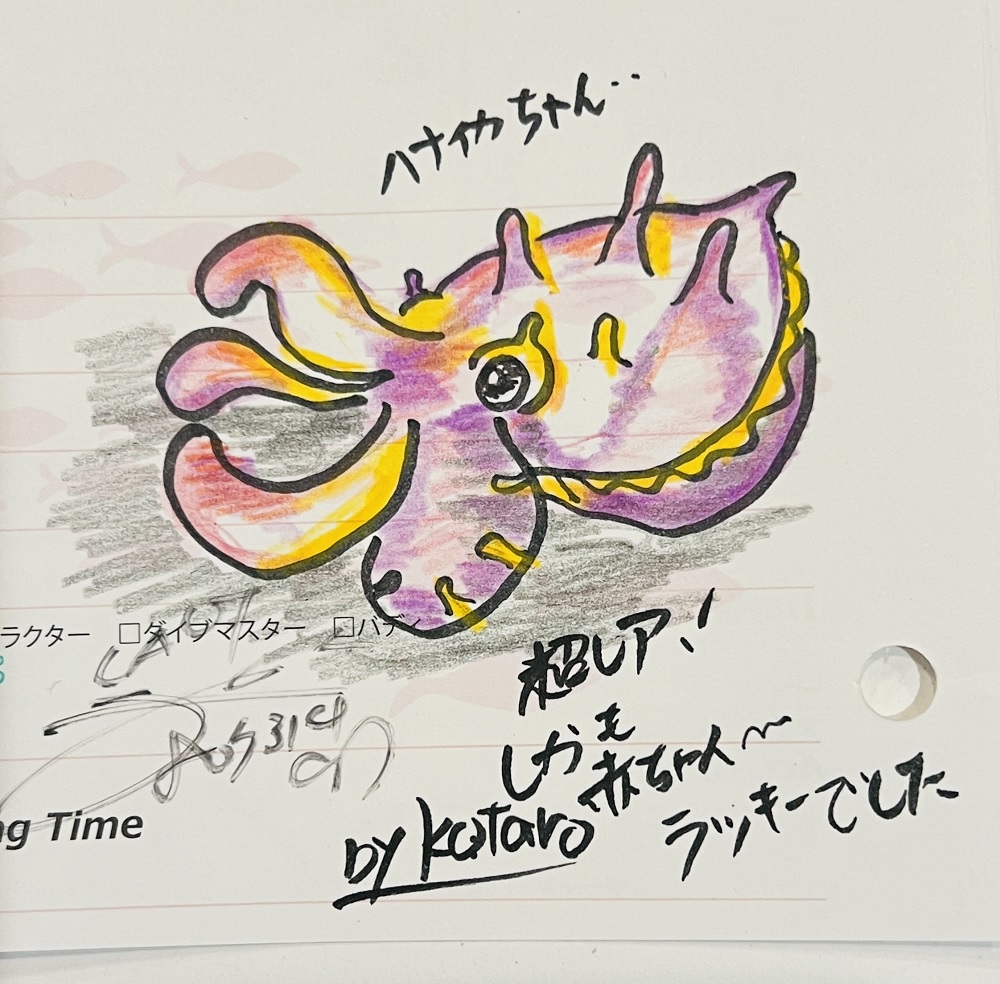 ハナイカちゃん‥
ラクター □ダイブマスター □バディ
超レア！
しかも
赤ちゃん〜
ラッキーでした
by kotaro
ng Time